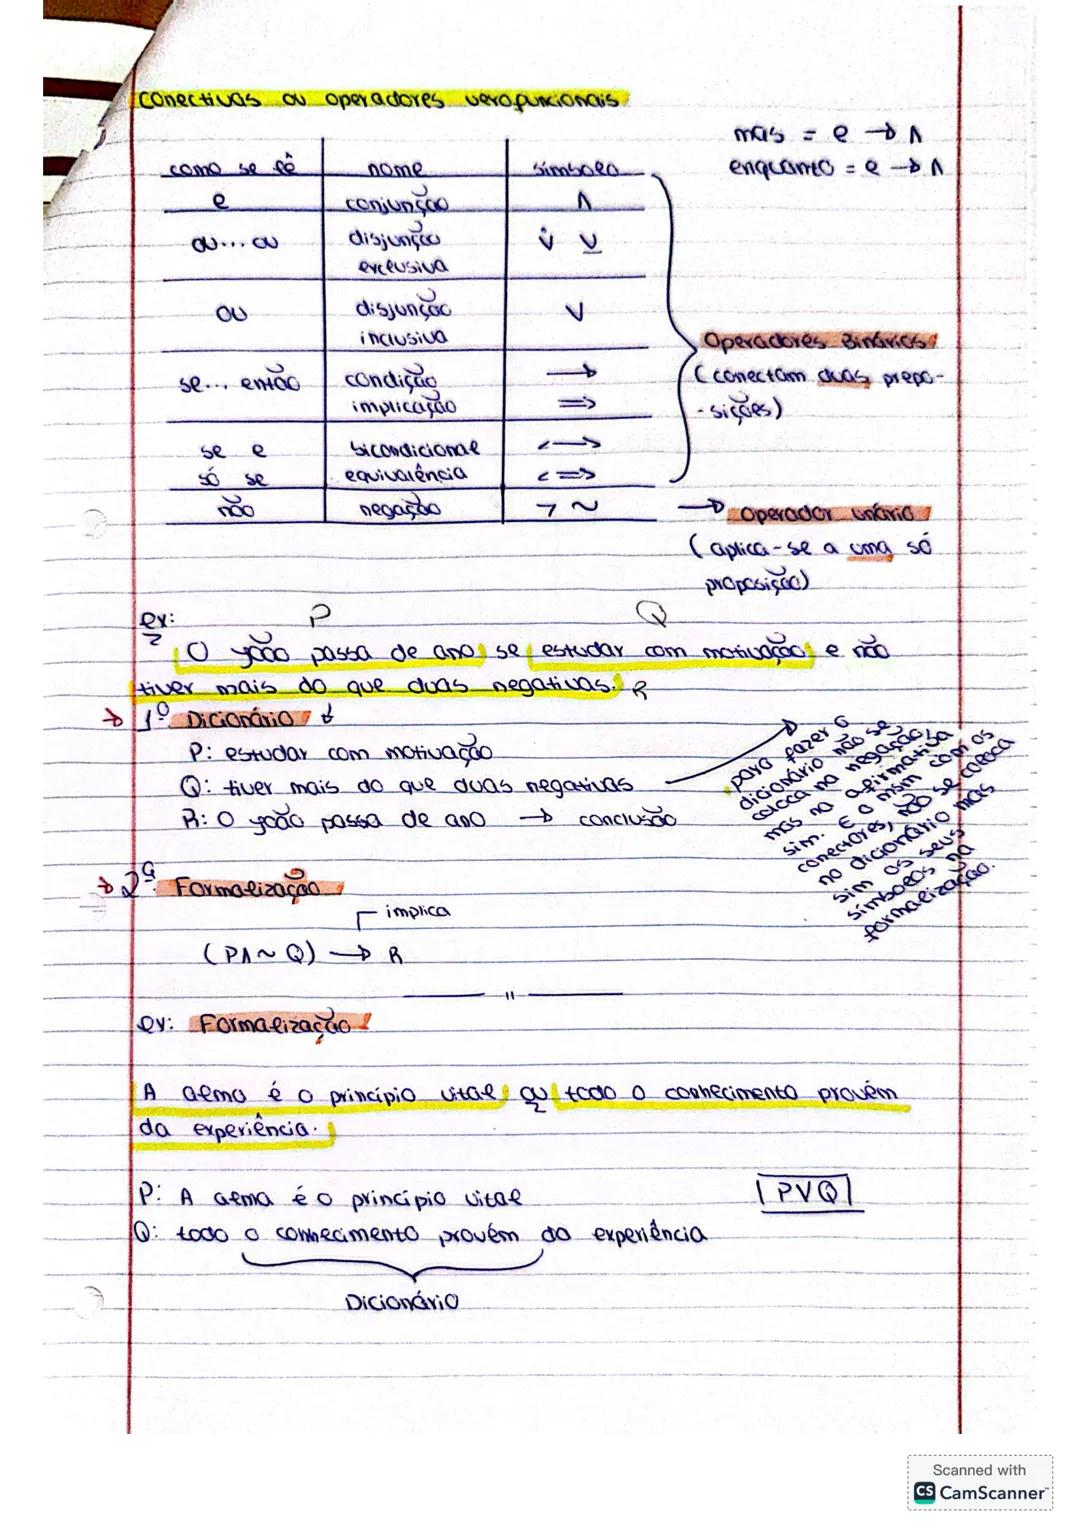 Conectivas ou operadores verofuncionais
mas = e → ∧
enquanto = e → ∧
como se lê nome símbolo
e conjunção ∧
ou... ou disjunção exclusiva v̇ v̲
ou disjunção inclusiva v
se... então condição implicação → ⇒
se e só se bicondicional equivalência ↔ ⇔
não negação ¬ ~
Operadores Binários
(conectam duas prepo-
-sições)
→ Operador unário
(aplica-se a uma só
proposição)
ex: P Q
O João passa de ano se estudar com motivação e não
tiver mais do que duas negativas. R
→ 1º Dicionário ↓
P: estudar com motivação
Q: tiver mais do que duas negativas
R: O João passa de ano → conclusão
para fazer o
dicionário não se
coloca na negação,
mas na afirmativa
sim. E o msm com os
conectores, não se coloca
no dicionário mas
sim os seus
símbolos na
formalização.
→ 2ª Formalização
implica
(P∧~Q) → R
"
ex: Formalização
A alma é o princípio vital ou todo o conhecimento provém
da experiência.
P: A alma é o princípio vital
PVQ
Q: todo o conhecimento provém da experiência
Dicionário
Scanned with
CS CamScanner